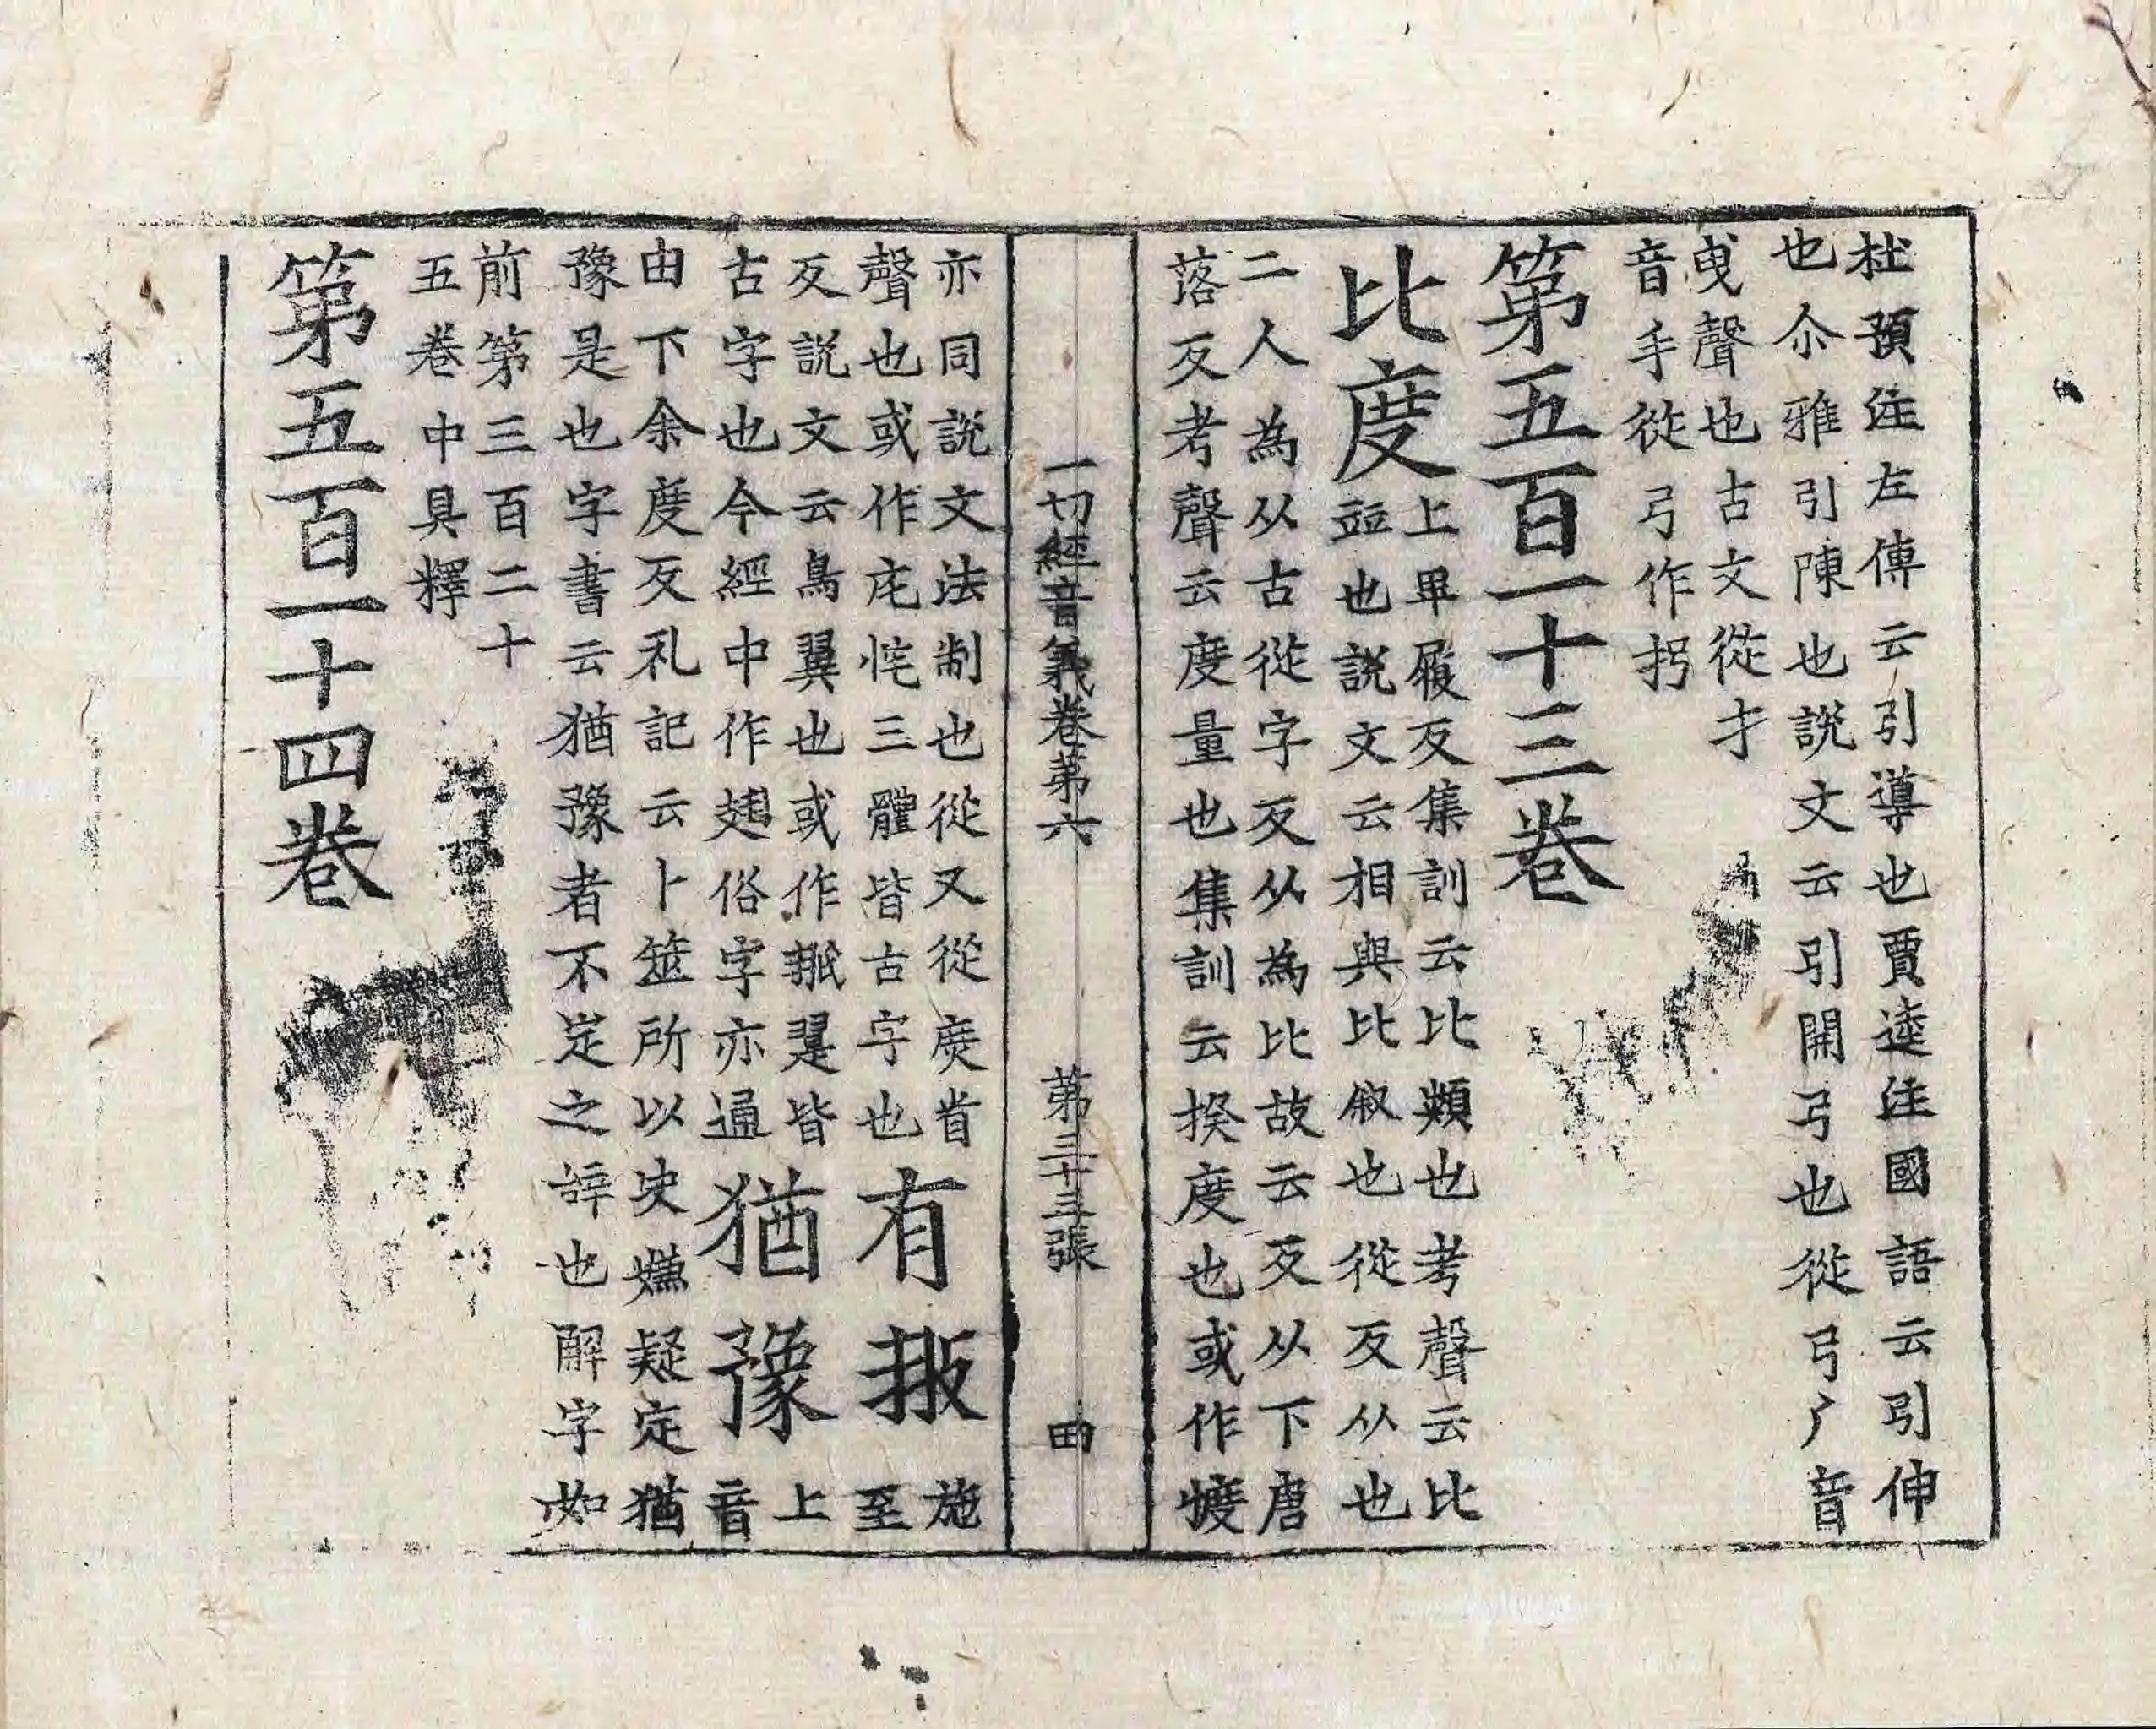 杜預注左傳云引導也賈逵注國語云引伸
也尒雅引陳也說文云引開弓也從弓丿音
曵聲也古文從才
音手從弓作㧈
第五百一十三卷
比度
上畢履反集訓云比類也考聲云比
竝也說文云相與比叙也從反从也
二人為从古從字反从為比故云反从下唐
落反考聲云度量也集訓云揆度也或作㡯
一切經音義卷第六 第三十三張 曲
亦同說文法制也從又從庻省
聲也或作庑㤞三體皆古字也
有翄
施至
反說文云鳥翼也或作翨皆
古字也今經中作翅俗字亦通
猶豫
上音
由下余度反礼記云卜筮所以决嫌疑定猶
豫是也字書云猶豫者不定之辝也解字如
前第三百二十
五卷中具釋
第五百一十四卷